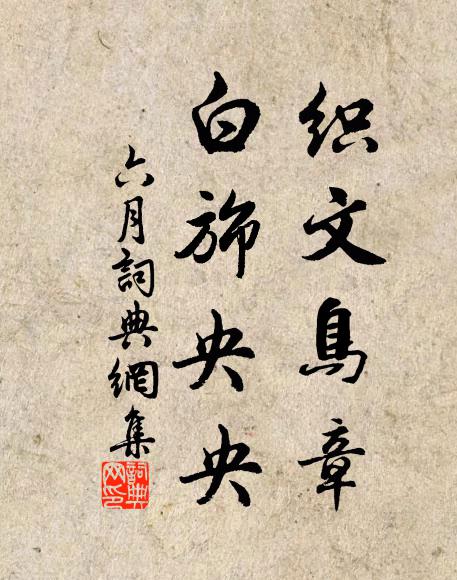 织文鳥章
白旆央央
六月詞典網集
詞典网印